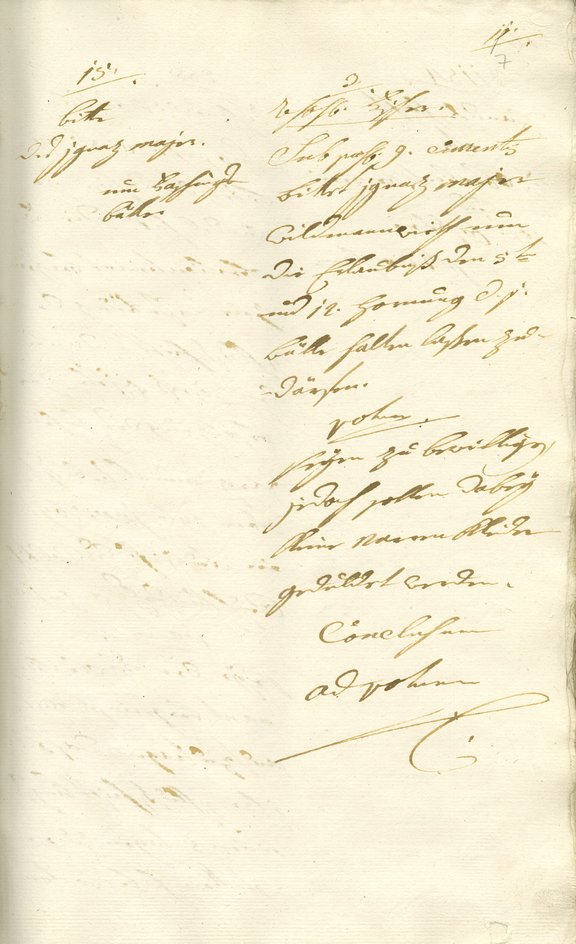 11.
7
15.
bitte
des Jgnaz Majer.
um
bälle
Sub 9. Currentis
bittet Jgnaz Majer
wildmannwirth um
die Erlaubniß den 5te
und 12. Hornung d. J.
bälle halten lassen zu
därfen.
Votum.
seyen zu bewilligen,
jedoch sollen dabey
keine Narren Kleider
gedüldet werden.
Conclusum
ad Votum